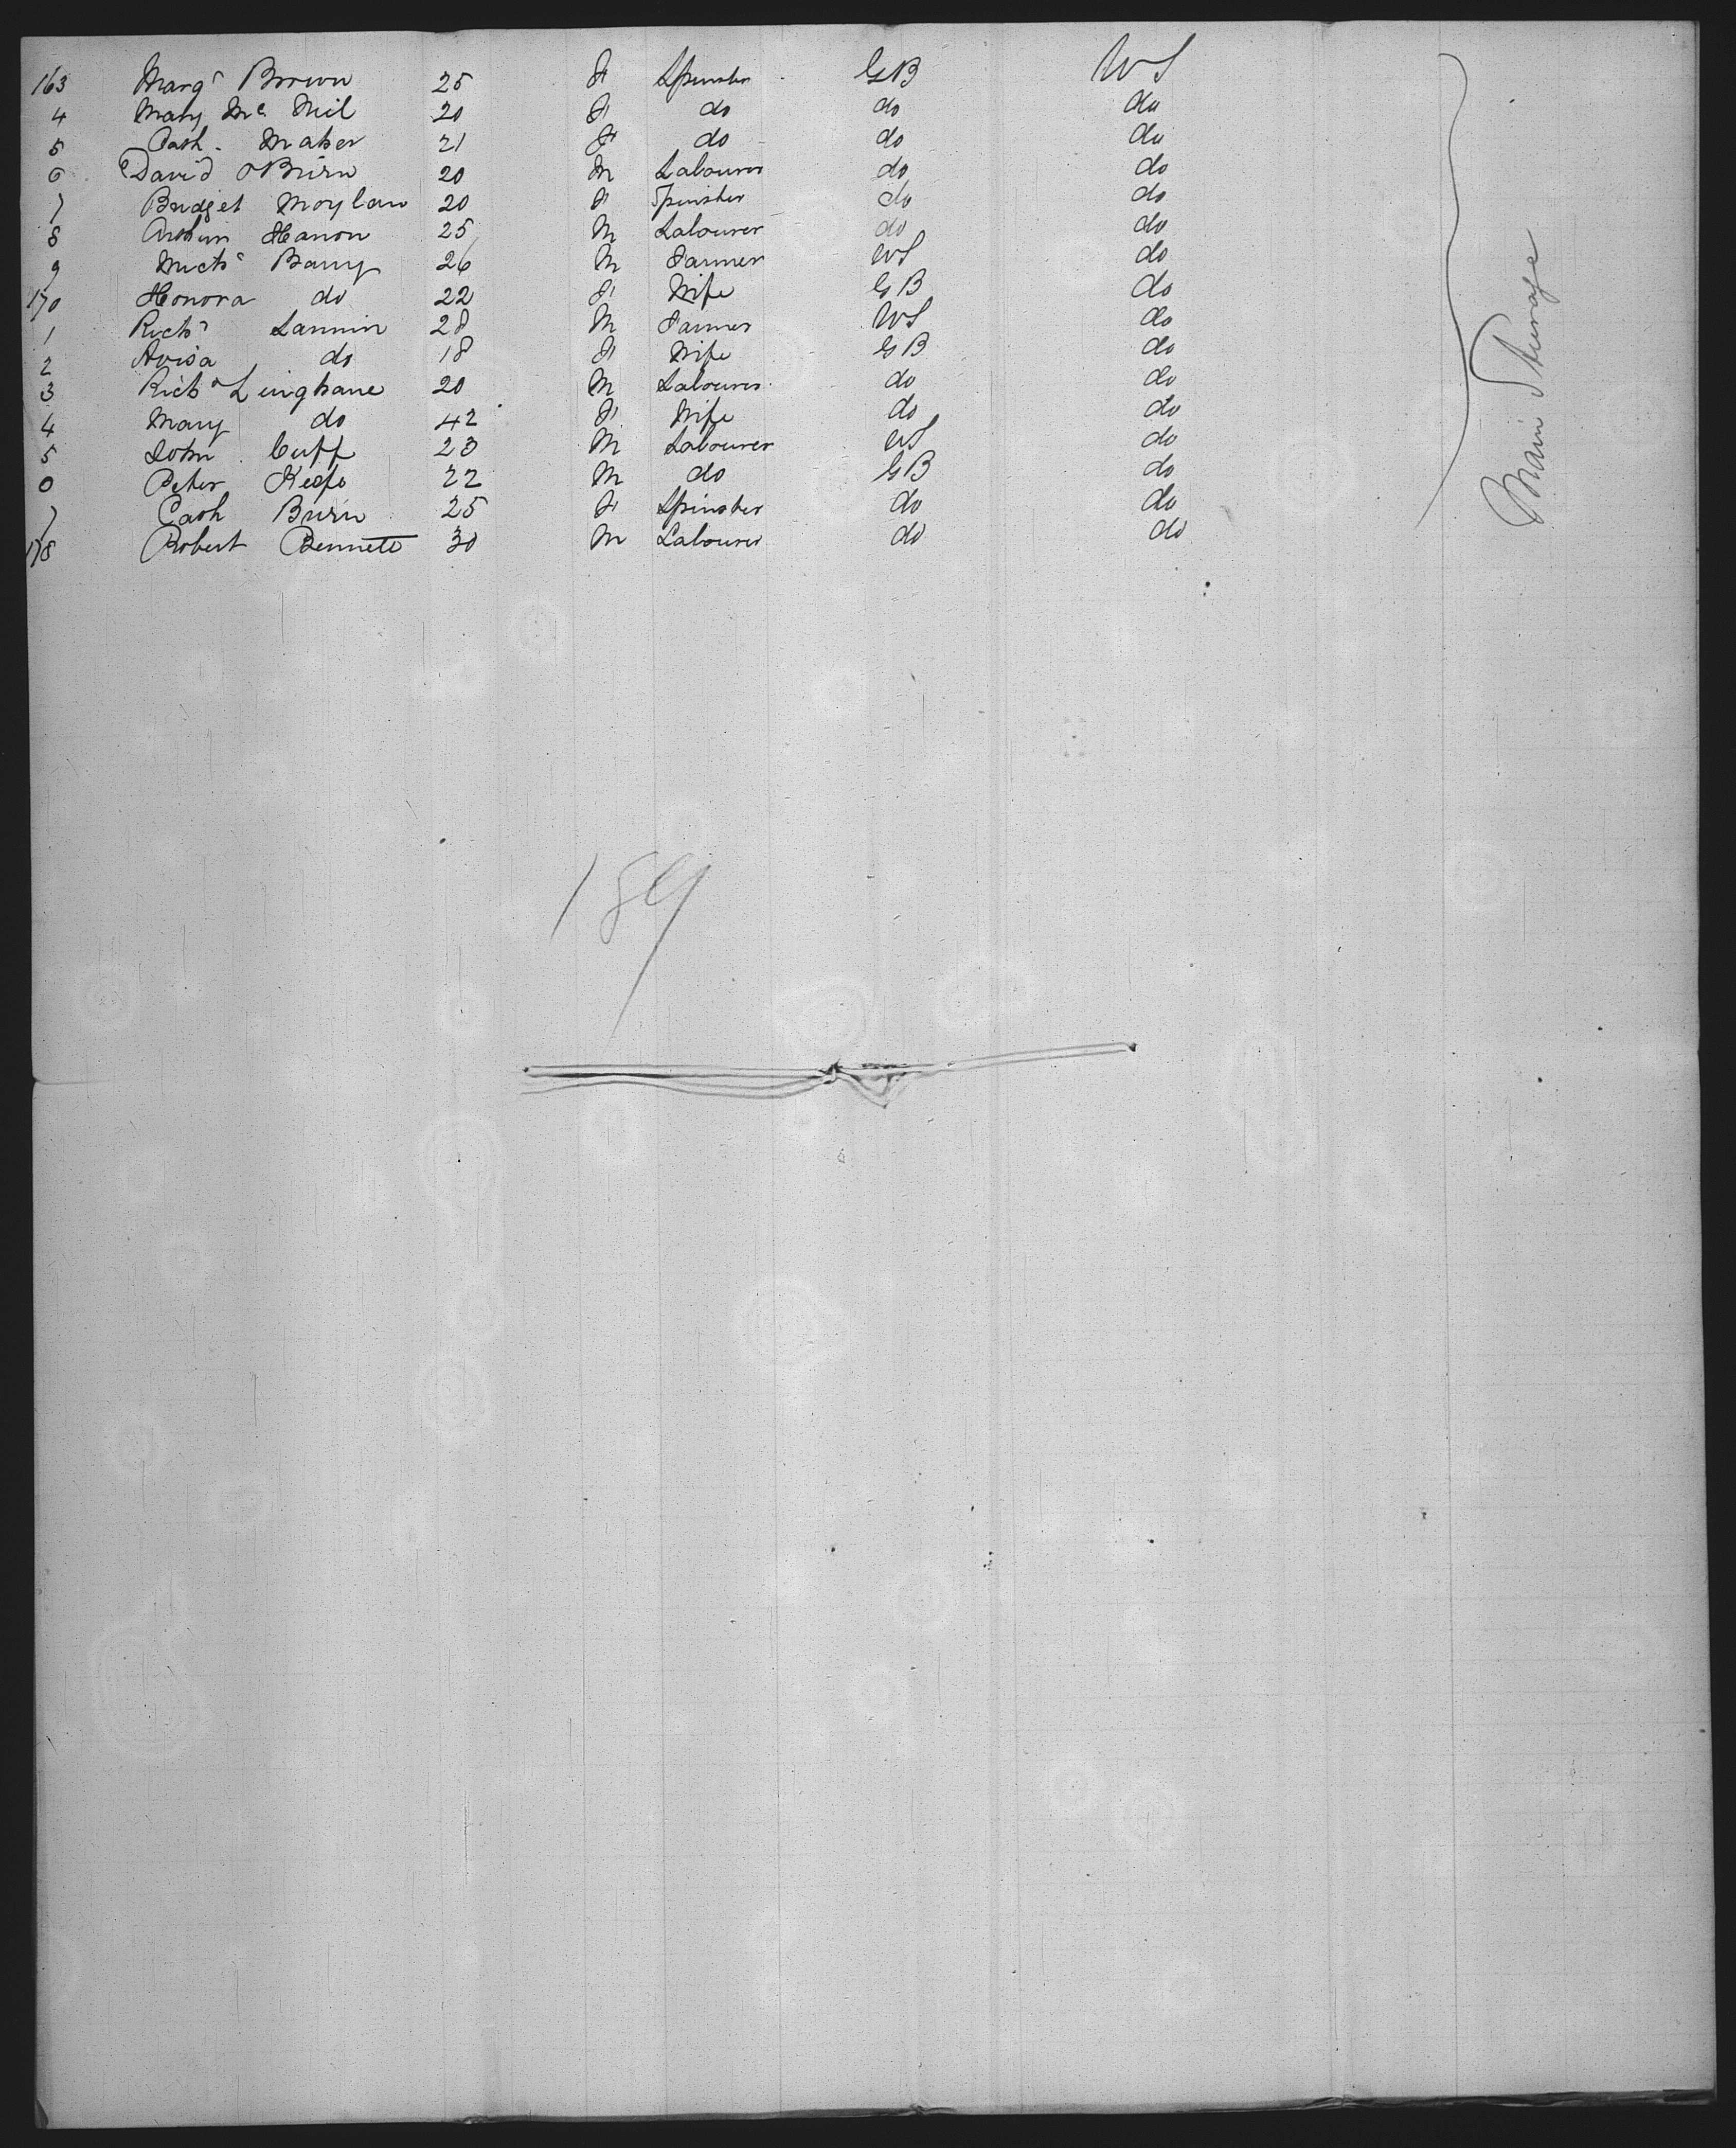 163 Margt Brown 25 F Spinster GB US
4 Mary Mc Neil 20 F do do do
5 Cath. Maher 21 F do do do
6 David OBrien 20 M Labourer do do
7 Bridget Moylan 20 F Spinster do do
8 Arthur Hanon 25 M Labourer do do
9 Michl Barry 26 M Farmer US do
170 Honora do 22 F Wife GB do
1 Richd Lannin 28 M Farmer US do
2 Avisa do 18 F Wife GB do
3 Richd Linghane 20 M Labourer do do
4 Mary do 42 F Wife do do
5 John Cuff 23 M Labourer US do
6 Peter Keefe 22 M do GB do
7 Cath Brien 25 F Spinster do do
178 Robert Bennett 30 M Labourer do do
Main Steerage
189